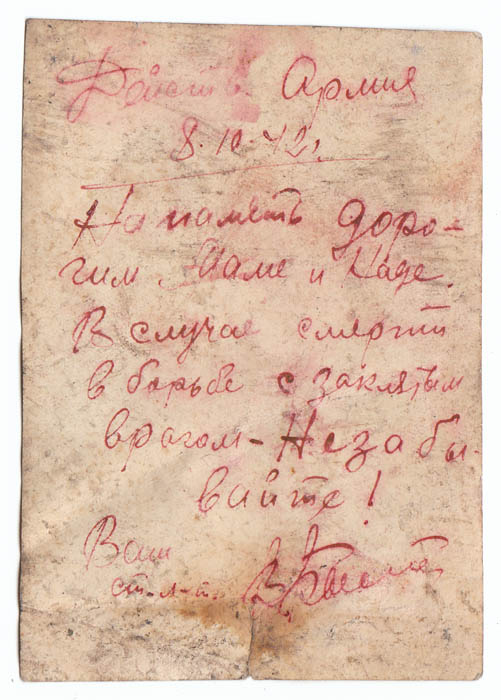 Действ. Армия
8.10.42г.
На память доро-
гим Маме и Наде.
В случае смерти
в борьбе с заклятым
врагом - Незабы-
вайте!
Ваш
ст. л-т.